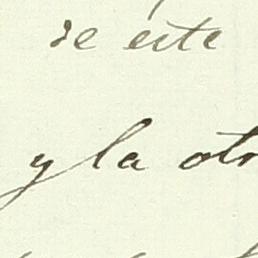 de este
y la otr